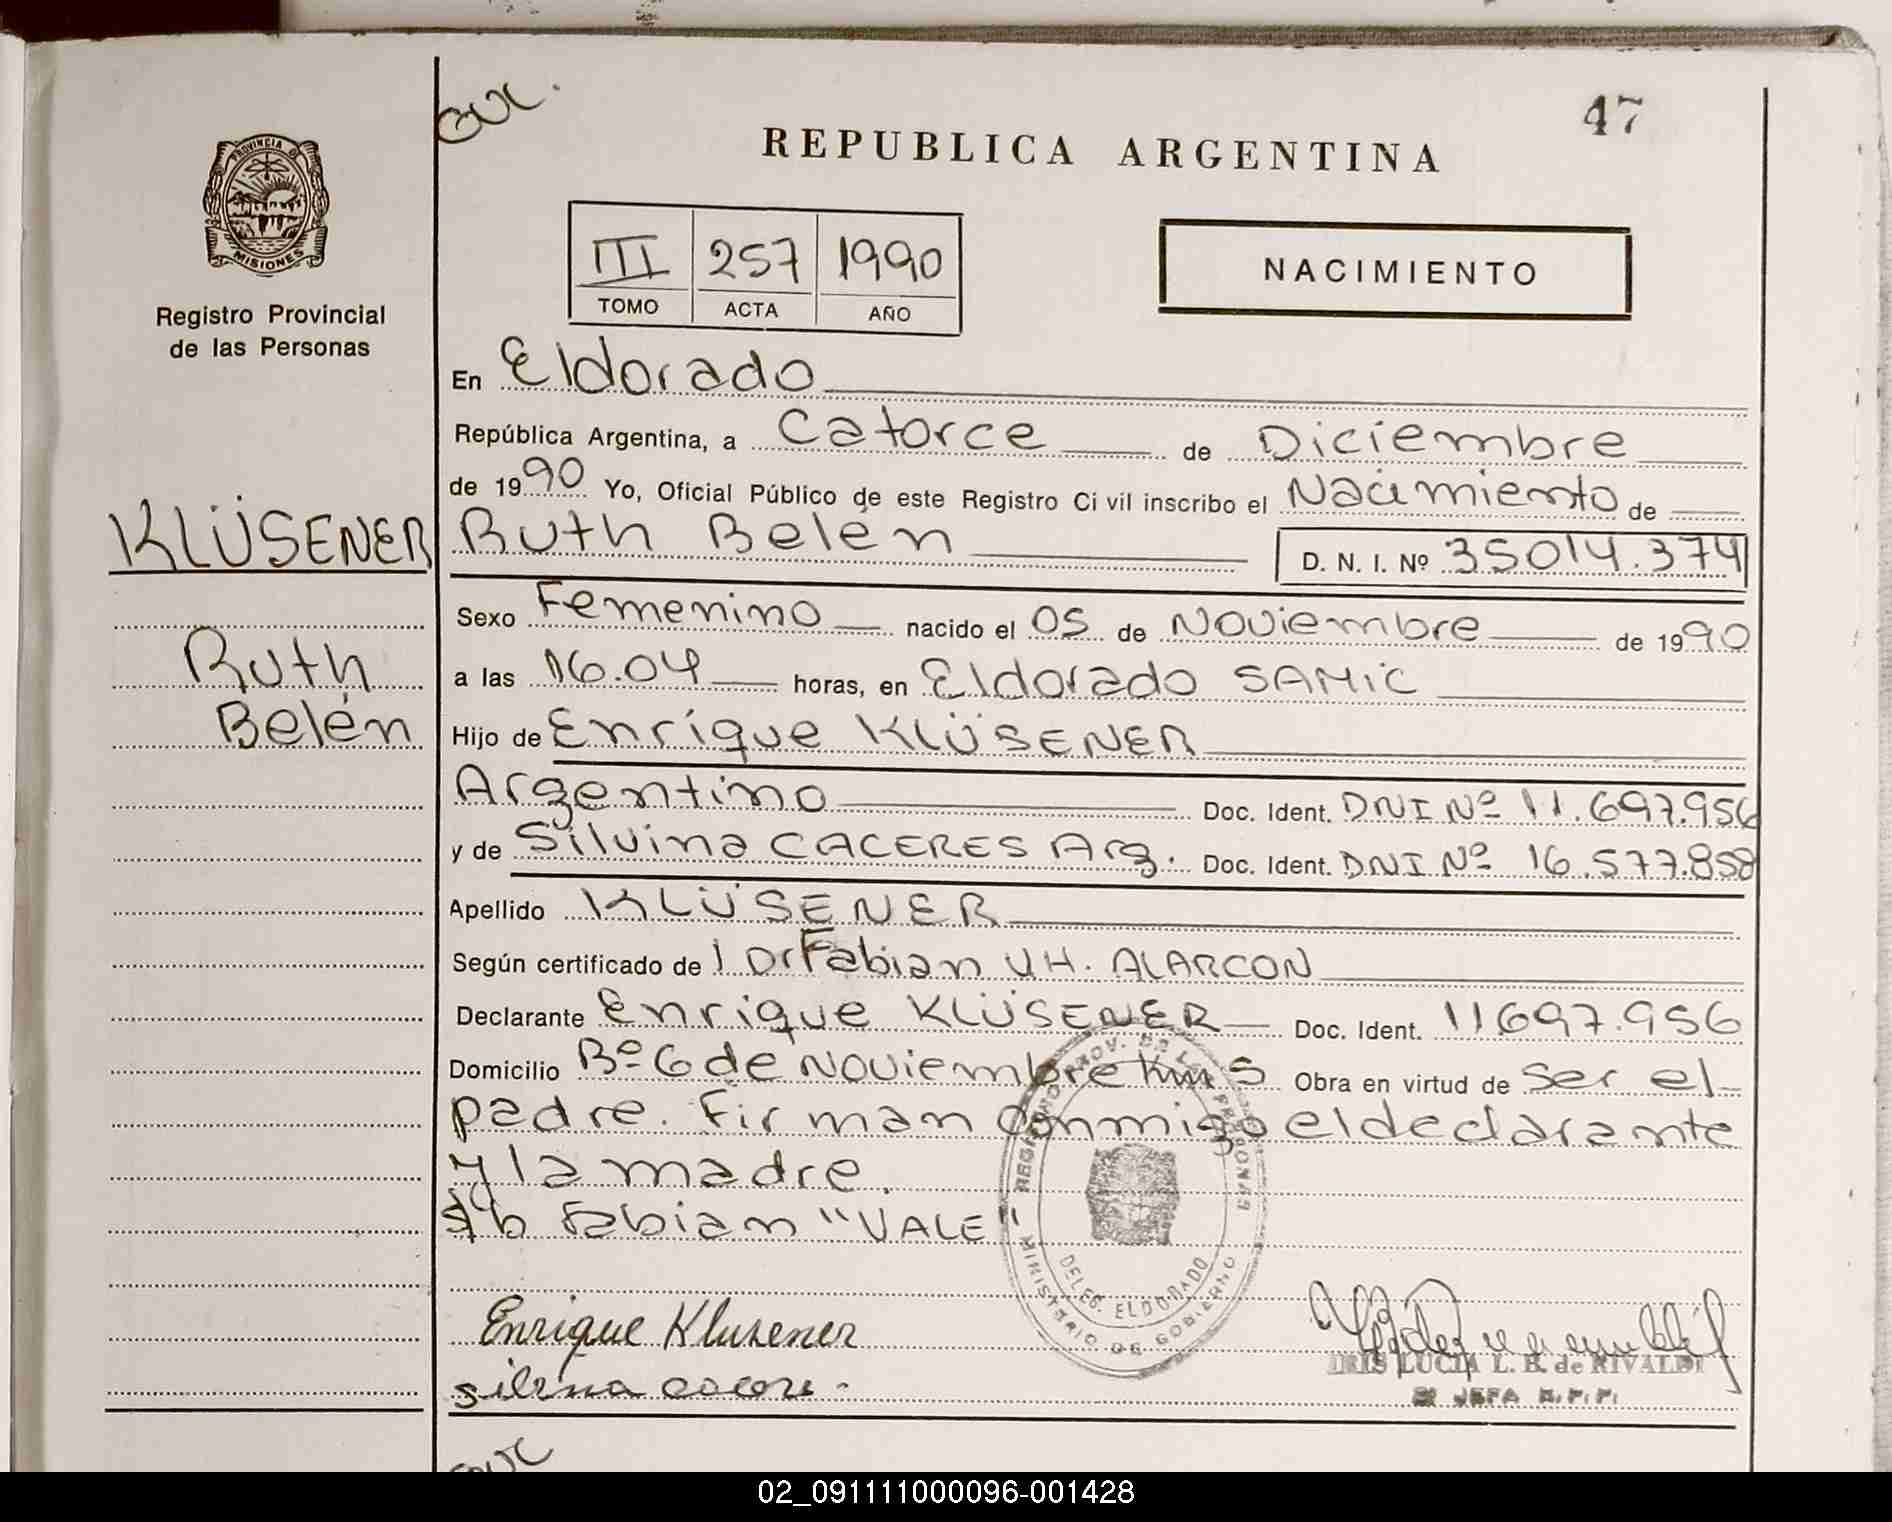 47
REPUBLICA ARGENTINA
PROVINCIA DE
MISIONES
Registro Provincial
de las Personas
III 257 1990
TOMO ACTA AÑO
NACIMIENTO
En Eldorado
República Argentina, a Catorce de Diciembre
de 1990 Yo, Oficial Público de este Registro Civil inscribo el Nacimiento de
KLÜSENER
Ruth Belen D. N. I. Nº 35014.374
Sexo Femenino nacido el 05 de Noviembre de 1990
Ruth
Belén
a las 16.04 horas, en Eldorado SAMIC
Hijo de Enrique KLÜSENER
Argentino Doc. Ident. DNI Nº 11.697.956
y de Silvina CACERES Arg. Doc. Ident. DNI Nº 16.577.858
Apellido KLÜSENER
Según certificado de l Dr Fabian V.H. ALARCON
Declarante Enrique KLÜSENER Doc. Ident. 11697.956
Domicilio Bº 6 de Noviembre Km 5 Obra en virtud de ser el
padre. Firman conmigo el declarante
y la madre.
s/b Fabian "VALE"
REGISTRO PROV. DE LAS PERSONAS
MINISTERIO DE GOBIERNO
DELEG. ELDORADO
Enrique Klusener
IRIS LUCIA L. B. de RIVALDI
JEFA R.P.P.
02_091111000096-001428